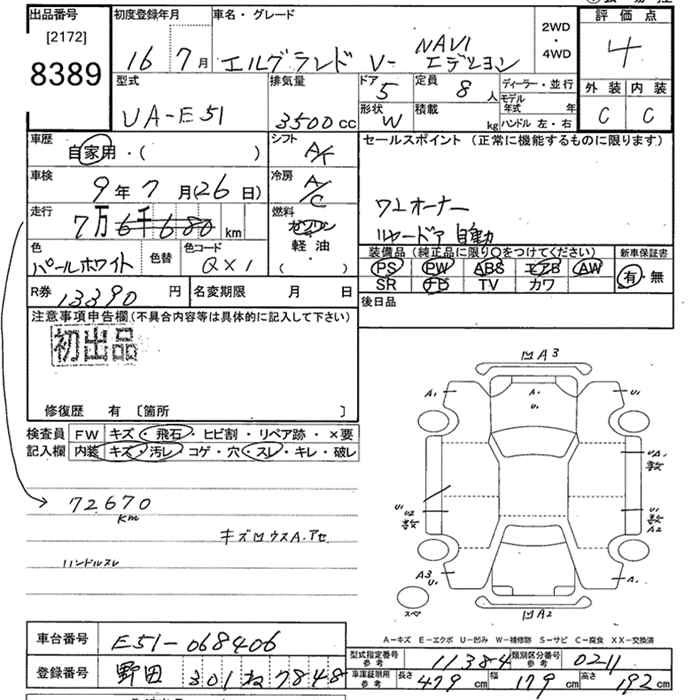 出品番号
[2172]
8389
初度登録年月
16 7 月
車名・グレード
エルグランド V- NAVI エディション
2WD
・
4WD
評価点
4
外装 内装
C C
型式
UA-E51
排気量
3500cc
ドア 5
定員 8 人
ディーラー・並行
モデル年式 年
形状 W
積載 kg
ハンドル 左・右
車歴
自家用・( )
シフト
A/T
セールスポイント (正常に機能するものに限ります)
ワンオーナー
リヤードア 自動
車検
9 年 7 月(26 日)
冷房
A/C
走行
7万 6千 680 km
燃料
ガソリン
軽油
・( )
色
パールホワイト
色替
色コード
QX1
装備品 (純正品に限り○をつけてください)
新車保証書
PS PW ABS エアB AW
有・無
SR ナビ TV カワ
R券 13390 円
名変期限 月 日
後日品
注意事項申告欄(不具合内容等は具体的に記入して下さい)
初出品
修復歴 有 〔箇所 〕
検査員 FW キズ・飛石・ヒビ割・リペア跡・×要
記入欄 内装 キズ・汚レ・コゲ・穴・スレ・キレ・破レ
72670
km
キズM ウスA.アセ
ハンドルスレ
MA3
A1 A1 U1
U1
UA1
U1
U2
U1
A2
A3
U1
A1
スペア
MA2
A-キズ E-エクボ U-凹み W-補修跡 S-サビ C-腐食 XX-交換済
車台番号 E51-068406
登録番号 野田 301 ね 7848
型式指定番号 参考 11384
類別区分番号 参考 0211
車庫証明用 参考 長さ 479 cm 幅 179 cm 高さ 192 cm